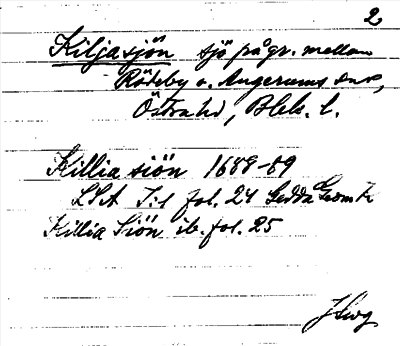 2
Kiljasjön sjö på gr. mellan
Rödeby o. Augerums snr,
Östra hd, Blek. l.
Killia siön 1688-89
LSA I:1 fol. 24 Gedda Geom. k
Killia Siön ib. fol. 25